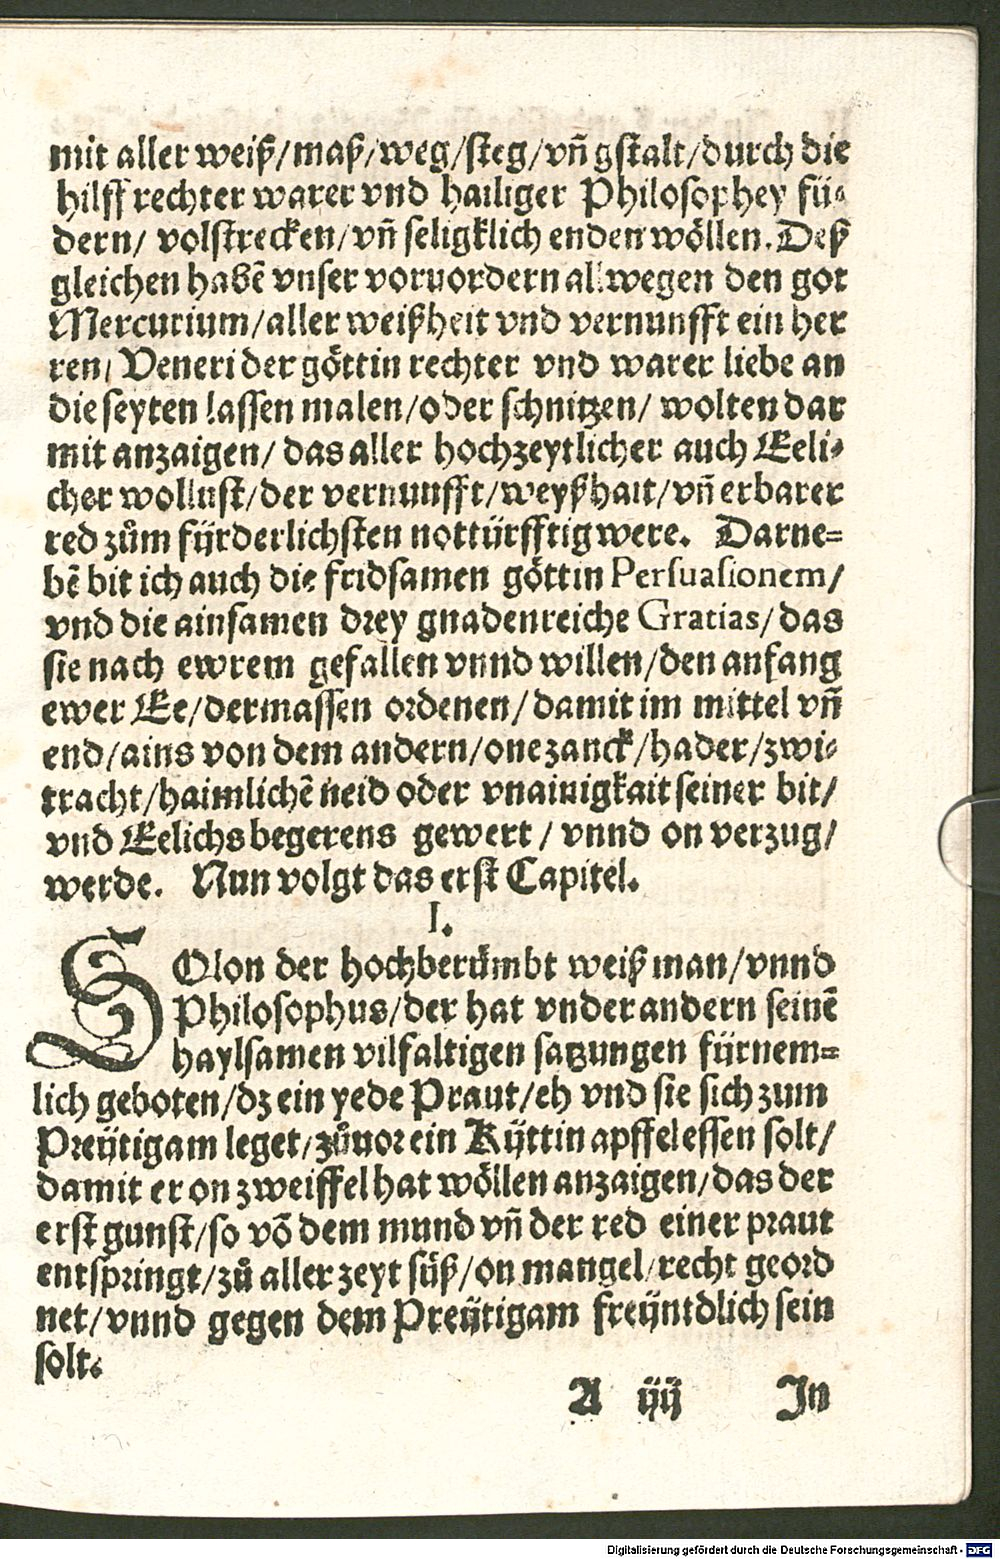 mit aller weiß/maß/weg/steg/vñ gstalt/durch die
hilff rechter warer vnd hailiger Philosophey fü⸗
dern/ volstrecken/vñ seligklich enden wöllen. Deß
gleichen habẽ vnser voruordern allwegen den got
Mercurium/aller weißheit vnd vernunfft ein her
ren/ Veneri der göttin rechter vnd warer liebe an
die seyten lassen malen/oder schnitzen/ wolten dar
mit anzaigen/ das aller hochzeytlicher auch Eeli⸗
cher wollust/der vernunfft/weyßhait/vñ erbarer
red zům fürderlichsten nottürfftig were. Darne⸗
bẽ bit ich auch die fridsamen göttin Persuasionem/
vnd die ainsamen drey gnadenreiche Gratias/das
sie nach ewrem gefallen vnnd willen/den anfang
ewer Ee/dermassen ordenen/damit im mittel vñ
end/ains von dem andern/one zanck/hader/zwi⸗
tracht/haimlichẽ neid oder vnainigkait seiner bit/
vnd Eelichs begerens gewert/ vnnd on verzug/
werde. Nun volgt das erst Capitel.
I.
SOlon der hochberümbt weiß man/vnnd
Philosophus/der hat vnder andern seinẽ
haylsamen vilfaltigen satzungen fürnem⸗
lich geboten/dz ein yede Praut/eh vnd sie sich zum
Preütigam leget/zůuor ein Küttin apffel essen solt/
damit er on zweiffel hat wöllen anzaigen/das der
erst gunst/so võ dem mund vñ der red einer praut
entspringt/zů aller zeyt süß/on mangel/recht geord
net/vnnd gegen dem Preütigam freüntdlich sein
solt.
A iij In
Digitalisierung gefördert durch die Deutsche Forschungsgemeinschaft - DFG